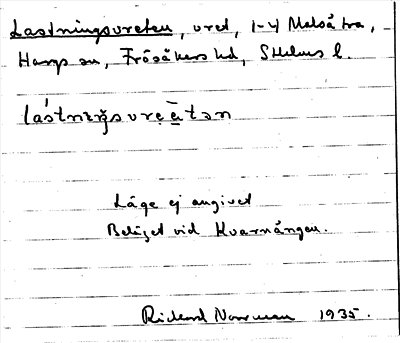 Lastningsvreten, vret, 1-4 Malsätra,
Hargs sn, Frösåkers hd, Sthlms l.
Läge ej angivet
Beläget vid Kvarnängen.
Rickard Norrman 1935.